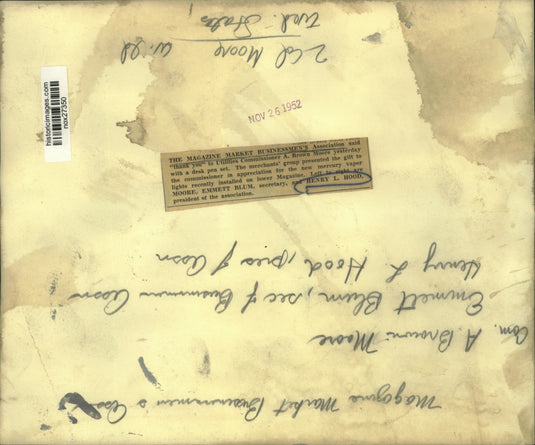 historicimages.com
nox27350
NOV 26 1952
THE MAGAZINE MARKET BUSINESSMEN'S Association said
"thank you" to Utilities Commissioner A. Brown Moore yesterday
with a desk pen set. The merchants' group presented the gift to
the commissioner in appreciation for the new mercury vapor
lights recently installed on lower Magazine. Left to right are
MOORE, EMMETT BLUM, secretary, and HENRY L. HOOD,
president of the association.
Magazine Market Businessmen's Assn
Com. A. Brown Moore
Emmett Blum, sec of Businessmen Assn
Henry L Hood, pres of Assn
2 Col Moore
Wed. States,